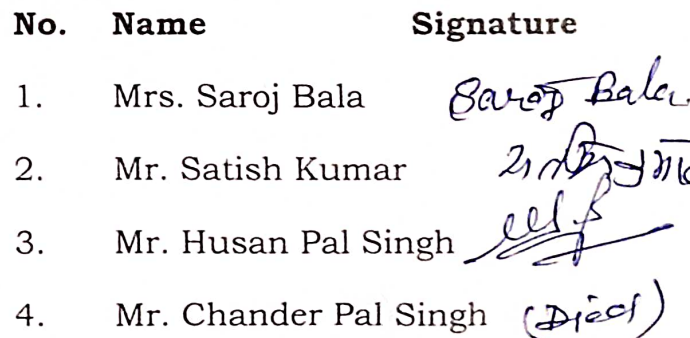 No. Name Signature
1. Mrs. Saroj Bala Saroj Bala
2. Mr. Satish Kumar
3. Mr. Husan Pal Singh
4. Mr. Chander Pal Singh (Died)